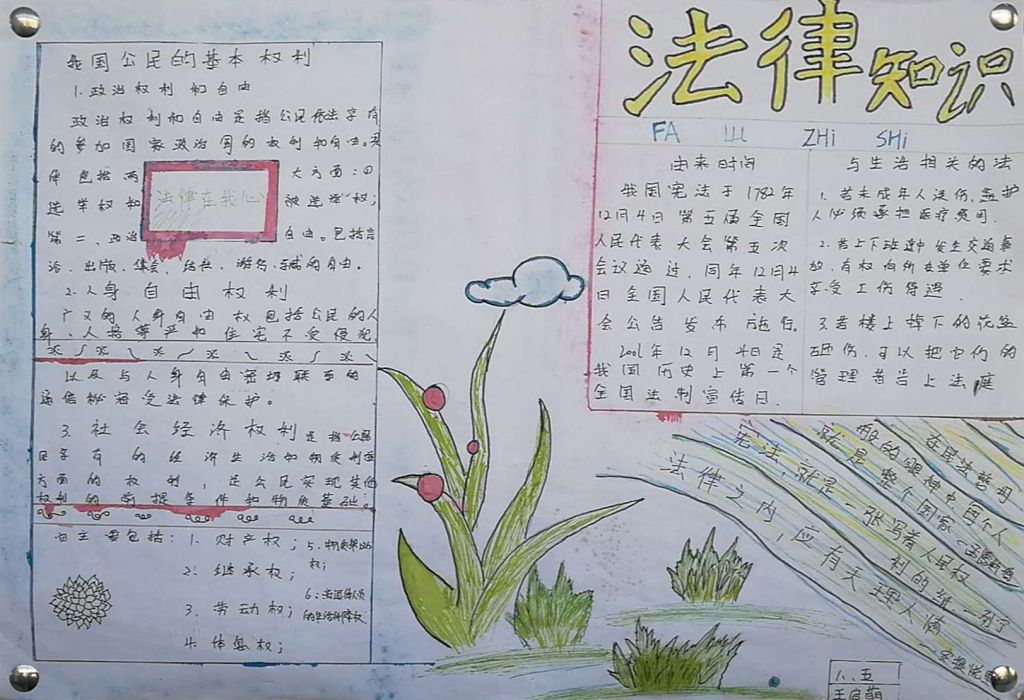 法律知识
FA LU ZHi SHi
我国公民的基本权利
1.政治权利和自由
政治权利和自由是指公民依法享有
的参加国家政治国的权利和自由。具
体包括两 大方面：①
选举权和 被选举权；
第二、政治 自由。包括言
论、出版、集会、结社、游行、示威的自由。
法律在我心
2.人身自由权利
广义的人身自由权包括公民的人
身、人格尊严和住宅不受侵犯
以及与人身自由密切联系的
通信秘密受法律保护。
3.社会经济权利是指公民
享有的经济生活和物质利益
方面的权利，是公民实现其他
权利的 条件和物质基础：
主要包括：1.财产权；
2.继承权；
3.劳动权；
4.休息权；
5、物质帮助
权；
6：
由来时间
我国宪法于1782年
12月4日第五届全国
人民代表大会第五次
会议通过，同年12月4
日全国人民代表大
会公告发布施行。
2001年12月4日是
我国历史上第一个
全国法制宣传日.
与生活相关的法
1.若未成年人送伤，监护
人必须承担医疗费用.
2.若上下班途中发生交通事
故，有权向所在单位要求
享受工伤待遇.
3.若楼上掉下的花盆
砸伤，可以把它们的
管理者告上法庭
在民法慈母
般的眼神中，两个人
就是整个国家<孟德斯鸠
宪法，就是一张写着人民权
利的纸.—列宁
法律之内，应有天理人情
—安提优
八、五
王启萌